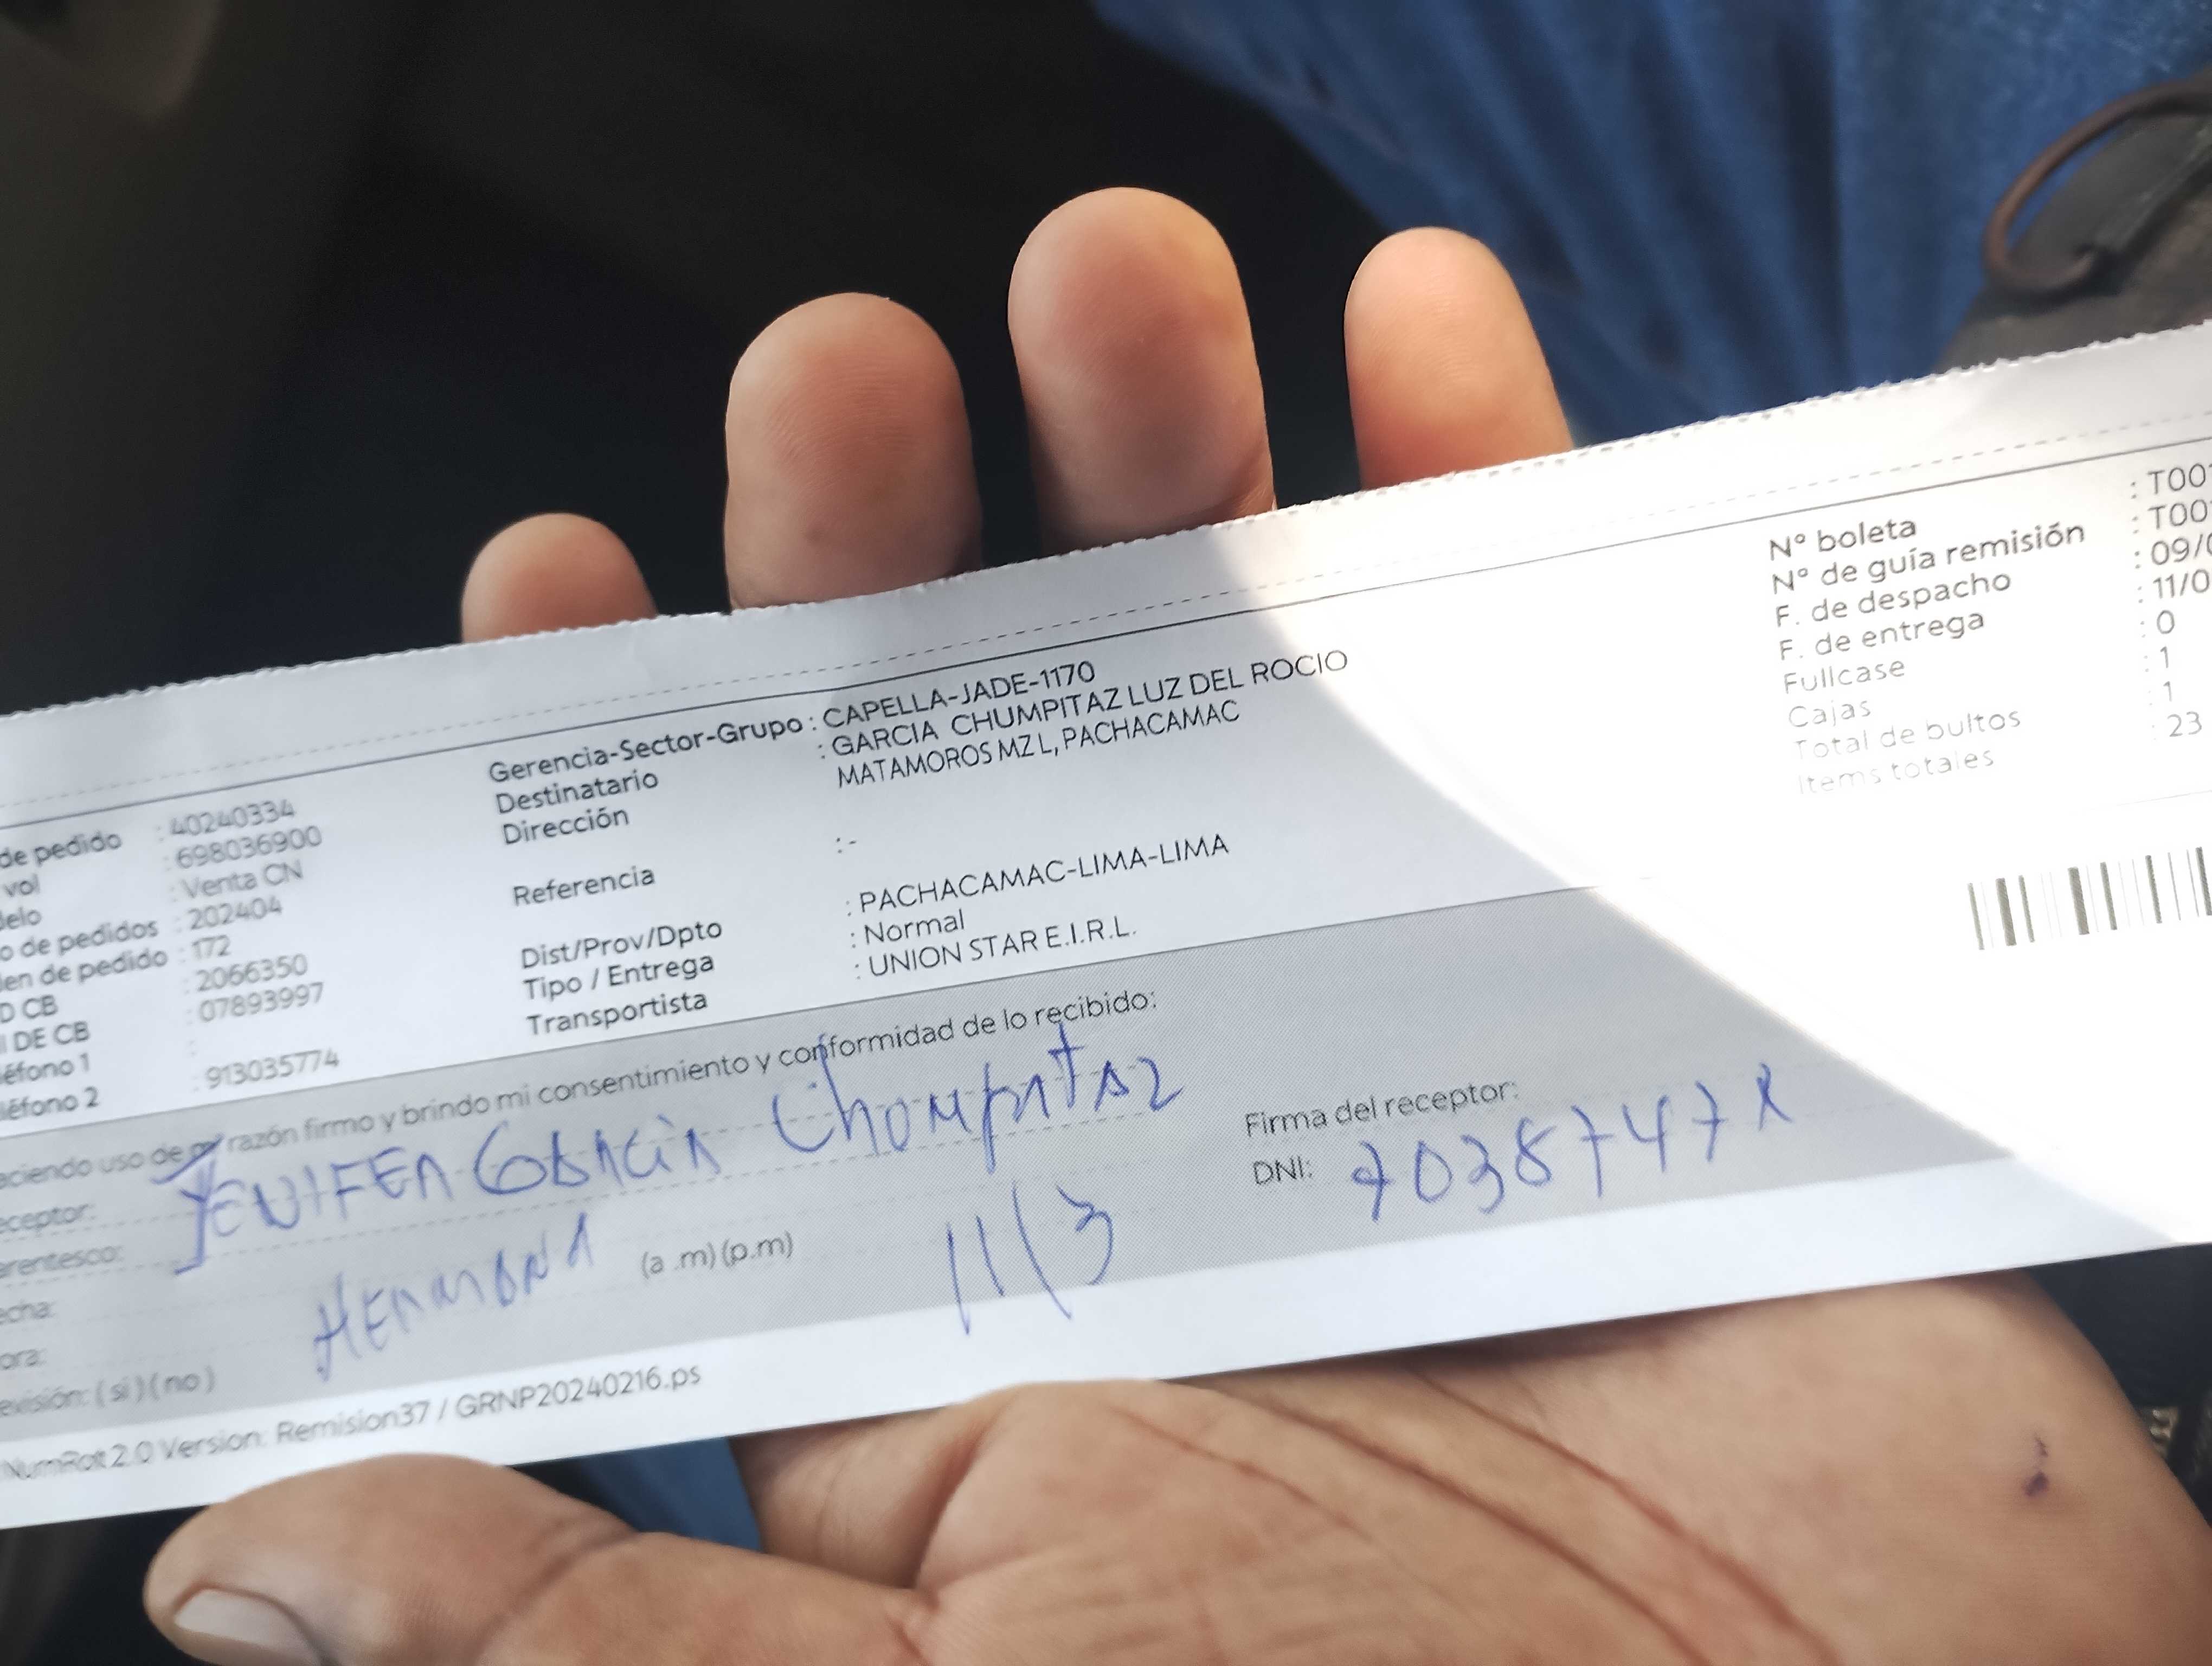 de pedido : 40240334
vol : 698036900
elo : Venta CN
o de pedidos : 202404
en de pedido : 172
D CB : 2066350
I DE CB : 07893997
éfono 1 :
éfono 2 : 913035774
Gerencia-Sector-Grupo : CAPELLA-JADE-1170
Destinatario : GARCIA CHUMPITAZ LUZ DEL ROCIO
Dirección MATAMOROS MZ L, PACHACAMAC
Referencia : -
Dist/Prov/Dpto : PACHACAMAC-LIMA-LIMA
Tipo / Entrega : Normal
Transportista : UNION STAR E.I.R.L.
N° boleta : T00
N° de guía remisión : T00
F. de despacho : 09/0
F. de entrega : 11/0
Fullcase : 0
Cajas : 1
Total de bultos : 1
Items totales : 23
aciendo uso de mi razón firmo y brindo mi consentimiento y conformidad de lo recibido:
eceptor: JENIFER GARCIA Chumpitaz
arentesco: HERMANA
echa: 11/3
ora: (a .m) (p.m)
evisión: ( si ) ( no )
Firma del receptor:
DNI:
NumRot 2.0 Version: Remision37 / GRNP20240216.ps